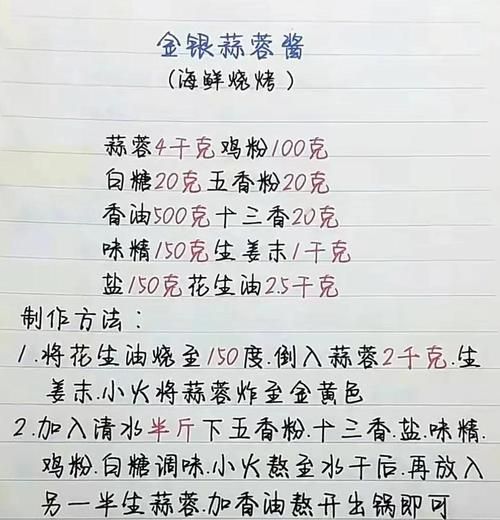 金银蒜蓉酱
(海鲜烧烤)
蒜蓉4千克鸡粉100克
白糖20克五香粉20克
香油500克十三香20克
味精150克生姜末1千克
盐150克花生油2.5千克
制作方法:
1.将花生油烧至150度.倒入蒜蓉2千克.生
姜末.小火将蒜蓉炸至金黄色
2.加入清水半斤下五香粉.十三香.盐.味精.
鸡粉.白糖调味.小火熬至水干后.再放入
另一半生蒜蓉.加香油熬开出锅即可